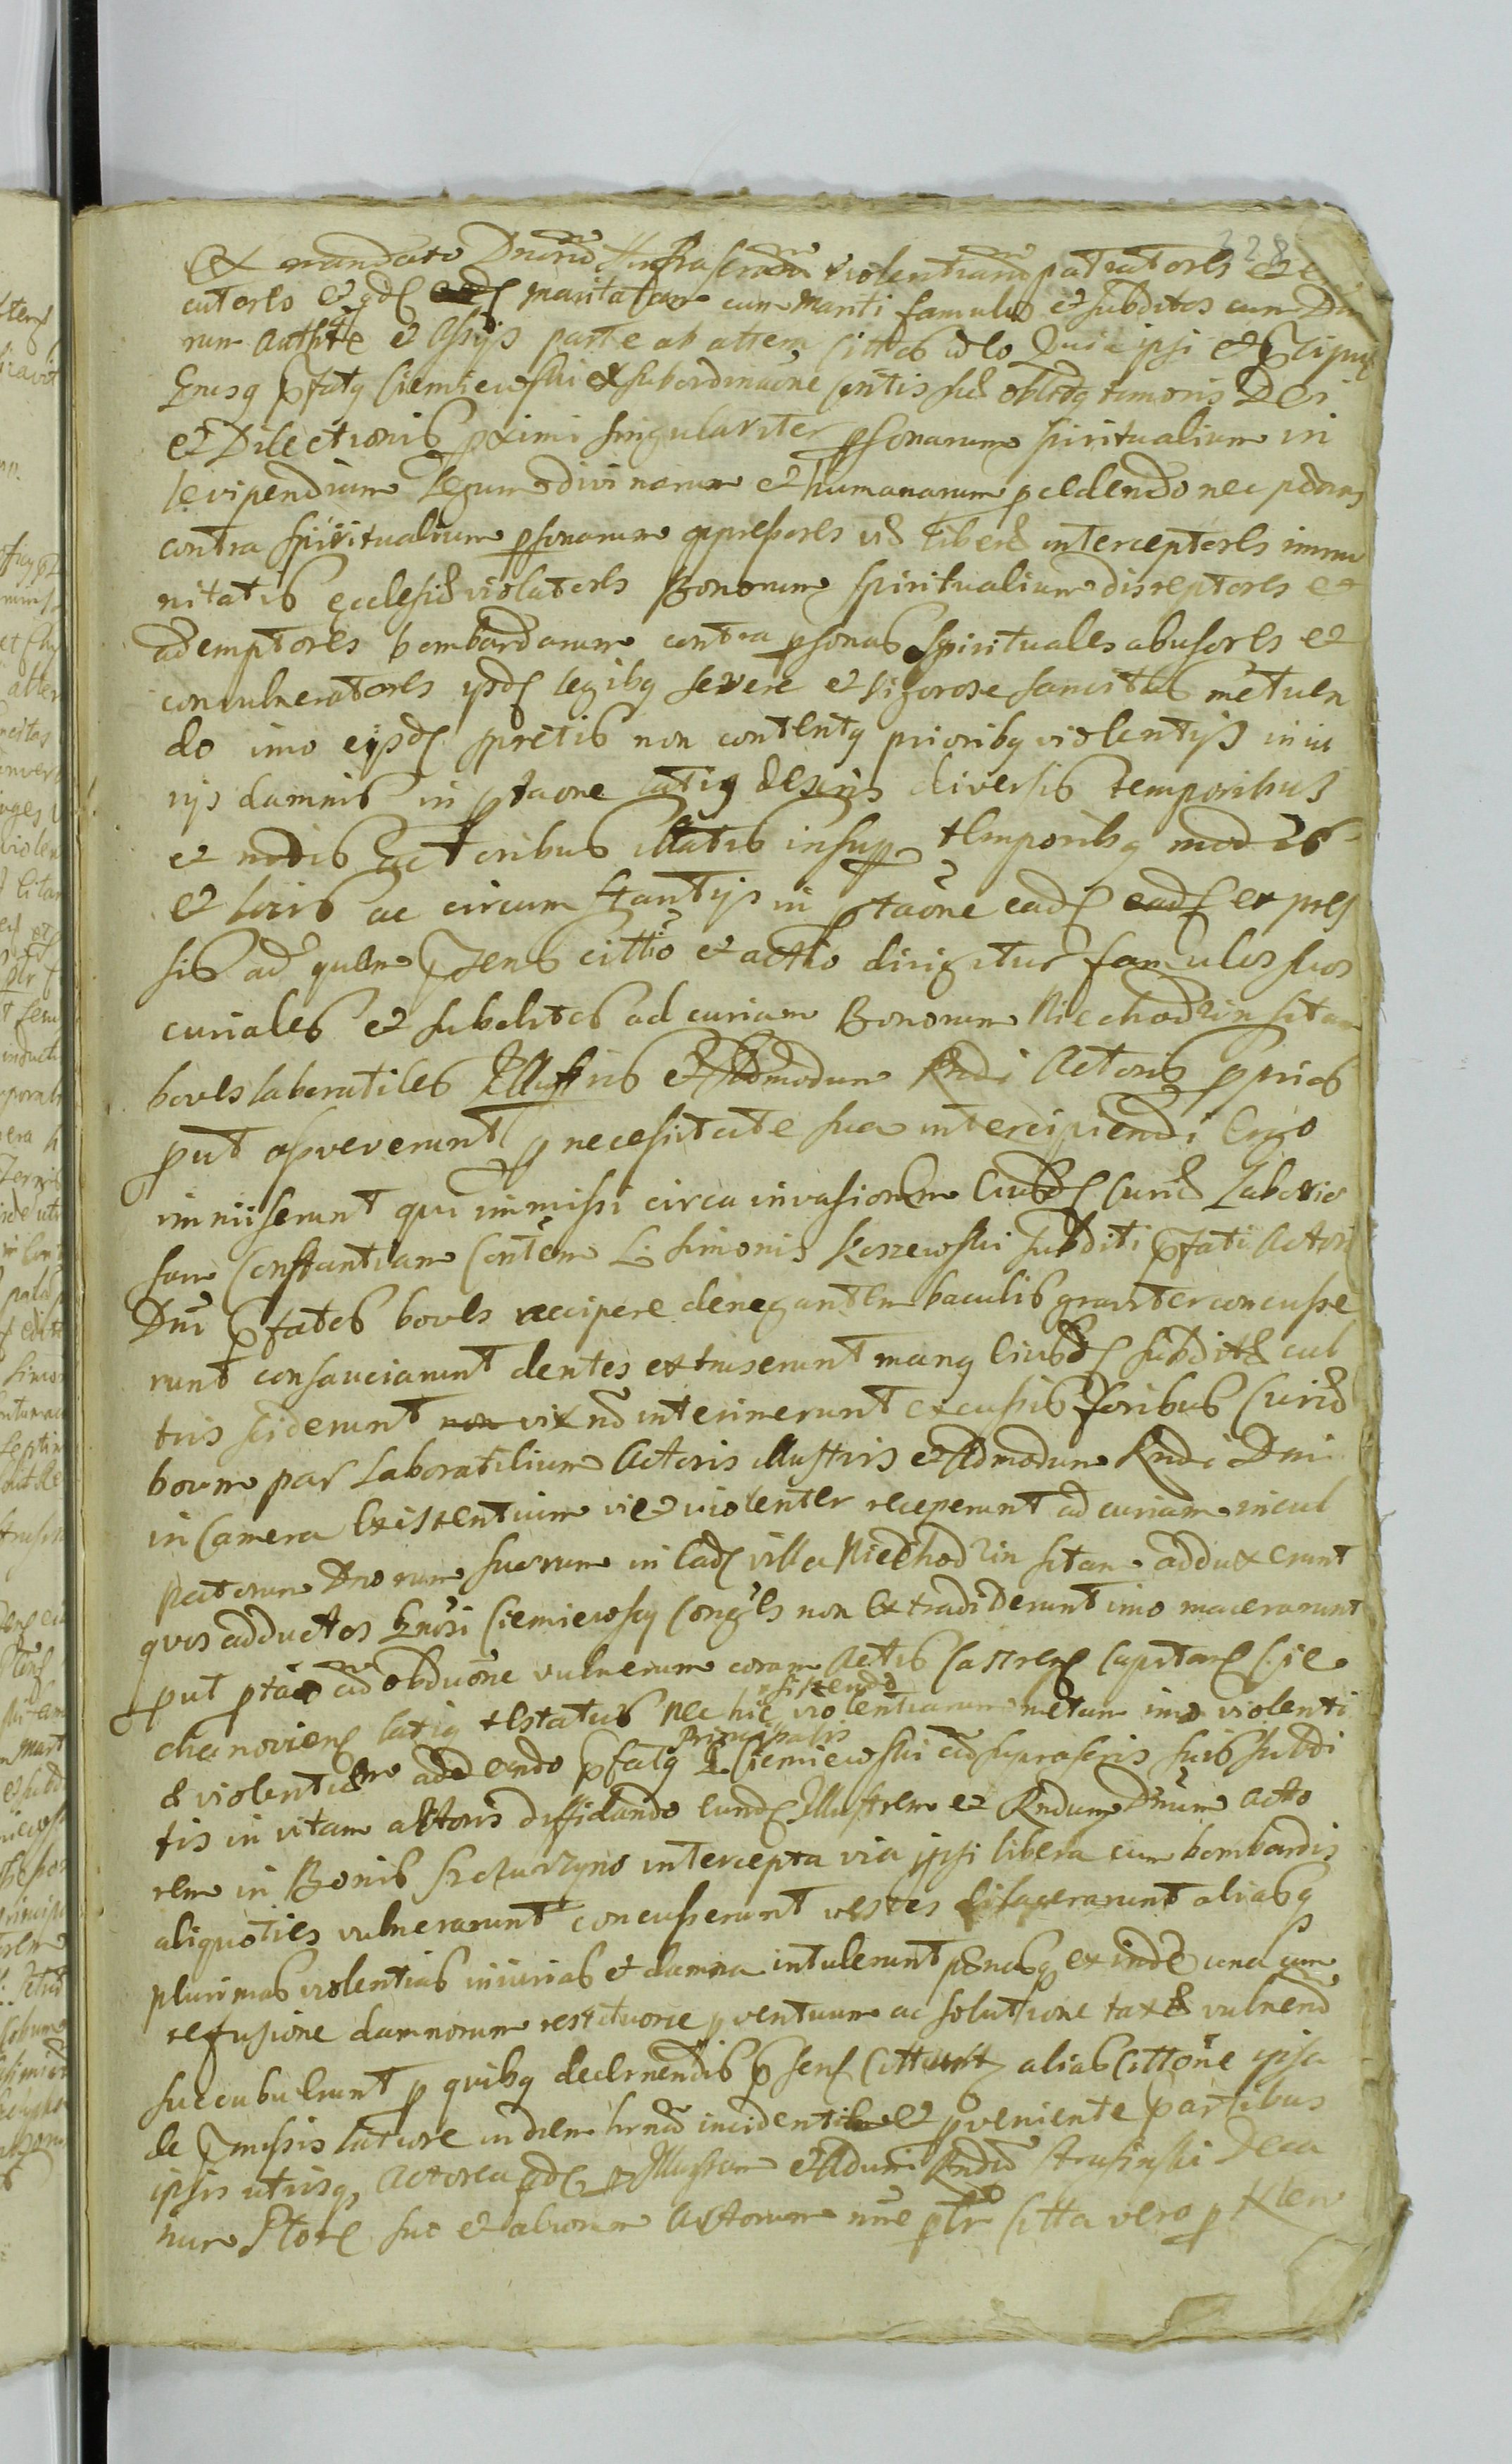 228
Ex mandato Dnorũ Infrascrõrũ violentiarũ patratores et exe
cutores et qd͠ maritatam cum mariti famulos et subditos cum Dño
rum authte et assijs parte ab altera cittos ideo Quia ipsi et Pncipalr
Gnusq pfatq Ciemiewski ex subordinaõne sentis suæ oblitq timoris Dei
et Dilectionis pximi singulariter psonarum spiritualium in
levipendium Legum divinarum et humanarum pcedendo nec pdams
contra spiritualium psonarum oppressores viæ liberæ interceptores immu
nitatis Ecclesiæ violatores Bonorum spiritualium direptores et
ademptores bombardarum contra psonas spirituales abusores et
convulneratores ijsd͠ legibq severe et rigorose sancitas metuen
do imo eijsd͠ spretis non contentq prioribq violentijs iniu
rijs damnis in ptaõne latiq descris diversis temporibus
et modis Actoribus illatis insup temporibq modis
et locis ac circumstantijs in ptaõne ead͠ ead͠ expres
sis ad quem pzens cittio et actio dirigitur famulos suos
curiales et subditos ad curiam Bonorum Niechodzin sitam
boves laboratiles Illustris et Admodum Rndi Actoris pprios
put asseverunt p necessitate sua intercipiendi Ergo
immiserunt qui immissi circa invasionem Eiusd͠ Curiæ Laborio
sam Constantiam Contem L. Simonis Koszewski subditi pfati Actoris
Dni pfatos boves recipere denegantem baculis graviter concusse
runt consauciarunt dentes extruserunt manq Eiusd͠ subditæ cul
tris sciderunt non vix nõ interimerunt excussis foribus Curiæ
boum par Laboratilium Actoris illustris et Admodum Rndi Dni
in Camera Existentium vi et violenter receperunt ad curiam incul
patorum Dnorum suorum in ead͠ villa Niechodzin sitam adduxerunt
quos adductos Gnosi Ciemiewscy Conges non Extradiderunt imo macerarunt
put ptaõ ad obduõne vulnerum coram Actis Castren͠ Capitan͠ Cie
chanovien͠ latiq testatur Nec hic sistendo violentiarum metam imo violenti
æ violentiam addendo pfatq Principalis L. Ciemiewski cũ suprascris suis subdi
tis in vitam actoris diffidando Eund͠ Illustrem et Rndum Dnum Acto
rem in Bonis Szczurzyno intercepta via ipsi libera cum bombardis
aliquoties vulnerarunt concusserunt vestes dilacerarunt aliasq
plurimas violentias iniurias et damna intulerunt pænasq exinde una cum
refusione damnorum restitutione pventuum ac solutione taxæ vulnerũ
succubuerunt p quibq decernendis psen͠ Citt aliasCittone ipsa
de pmissis latiore in diem hernã incidenti et pveniente Partibus
ipsis utrisq Actorea qd͠ p Illustrem et Admm Rndũ Stra Deca
num Ploc͠ suo et aliorum Actorum nne ptr Citta vero p